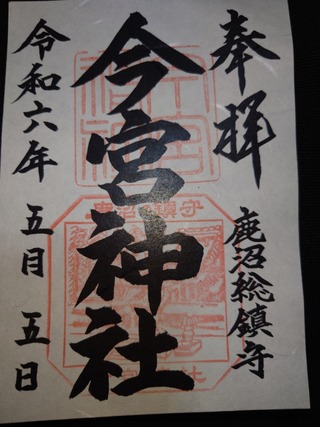 奉拝
鹿沼総鎮守
今宮神社
令和六年 五月 五日